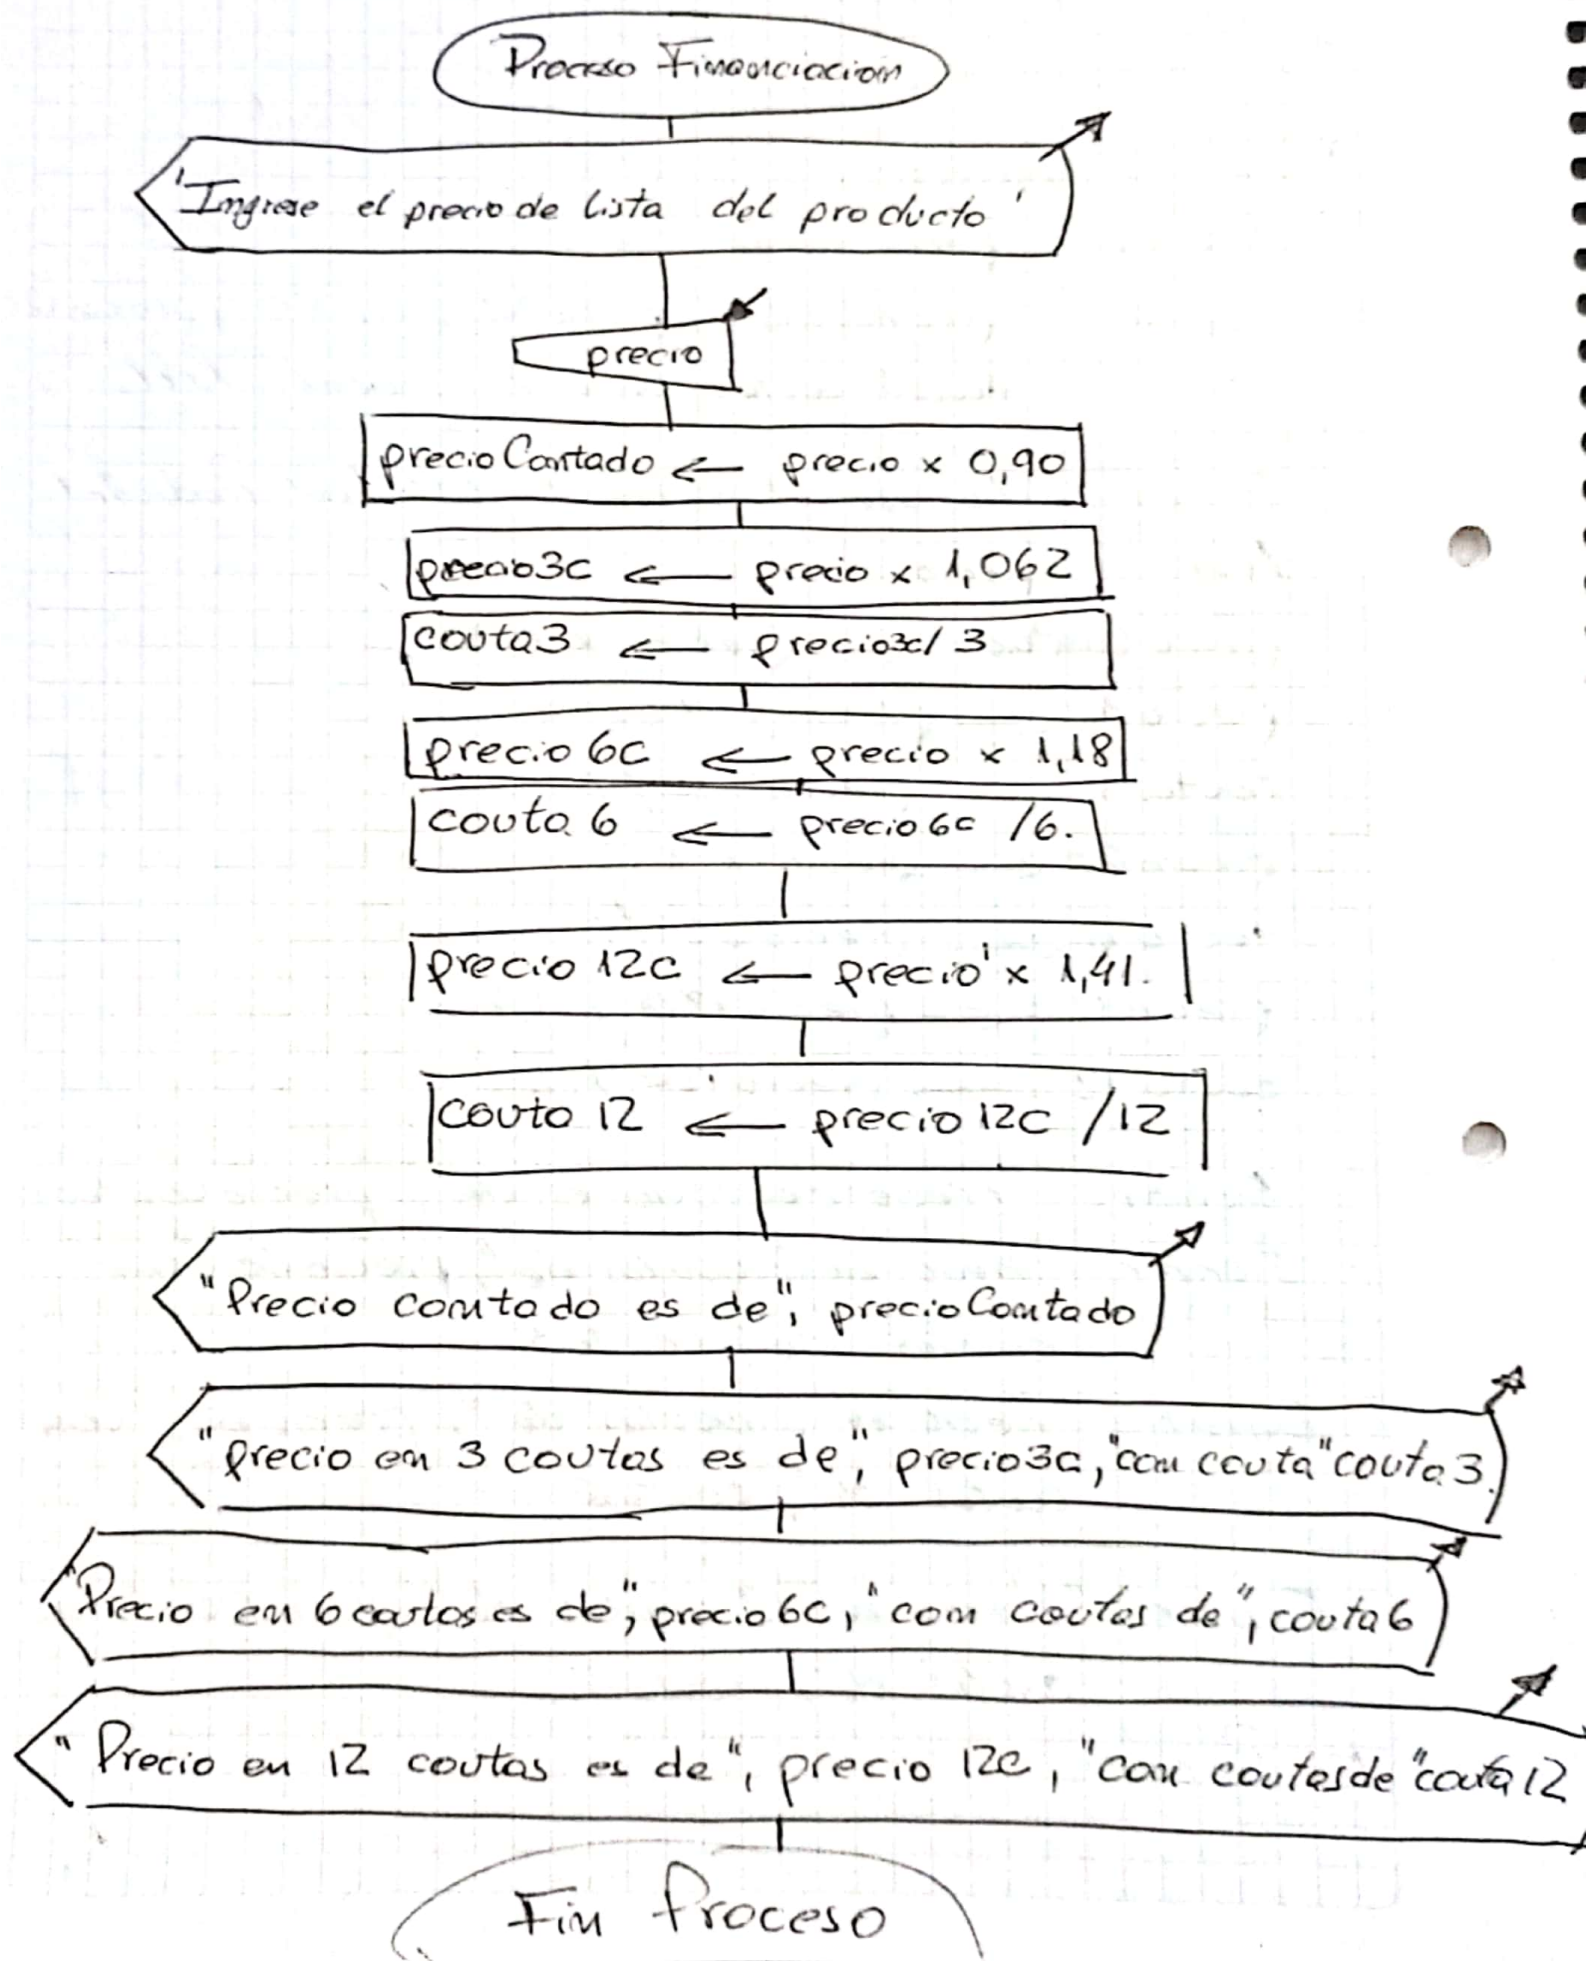 Proceso Financiacion
'Ingrese el precio de lista del producto'
precio
precioContado ← precio x 0,90
precio3c ← precio x 1,062
couta3 ← precio3c/3
precio6c ← precio x 1,18
couta6 ← precio6c /6.
precio12c ← precio x 1,41.
couta12 ← precio12c /12
"Precio contado es de", precioContado
"precio en 3 coutas es de", precio3c, "con couta" couta3.
"Precio en 6 coutas es de", precio6c, "con coutas de", couta6
"Precio en 12 coutas es de", precio12c, "con coutas de" couta12
Fin Proceso